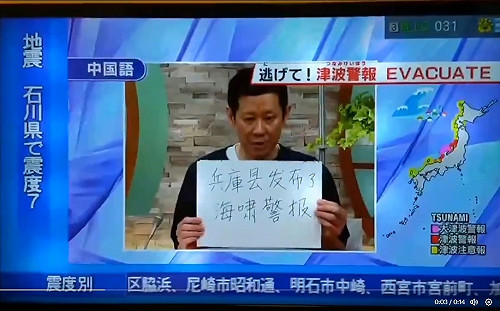 地震 石川県で震度７
中国語
逃げて！津波警報 EVACUATE
兵庫县发布了
海啸警报
TSUNAMI
大津波警報
津波警報
津波注意報
震度別
区脇浜、尼崎市昭和通、明石市中崎、西宮市宮前町、
031
0:03 / 0:14